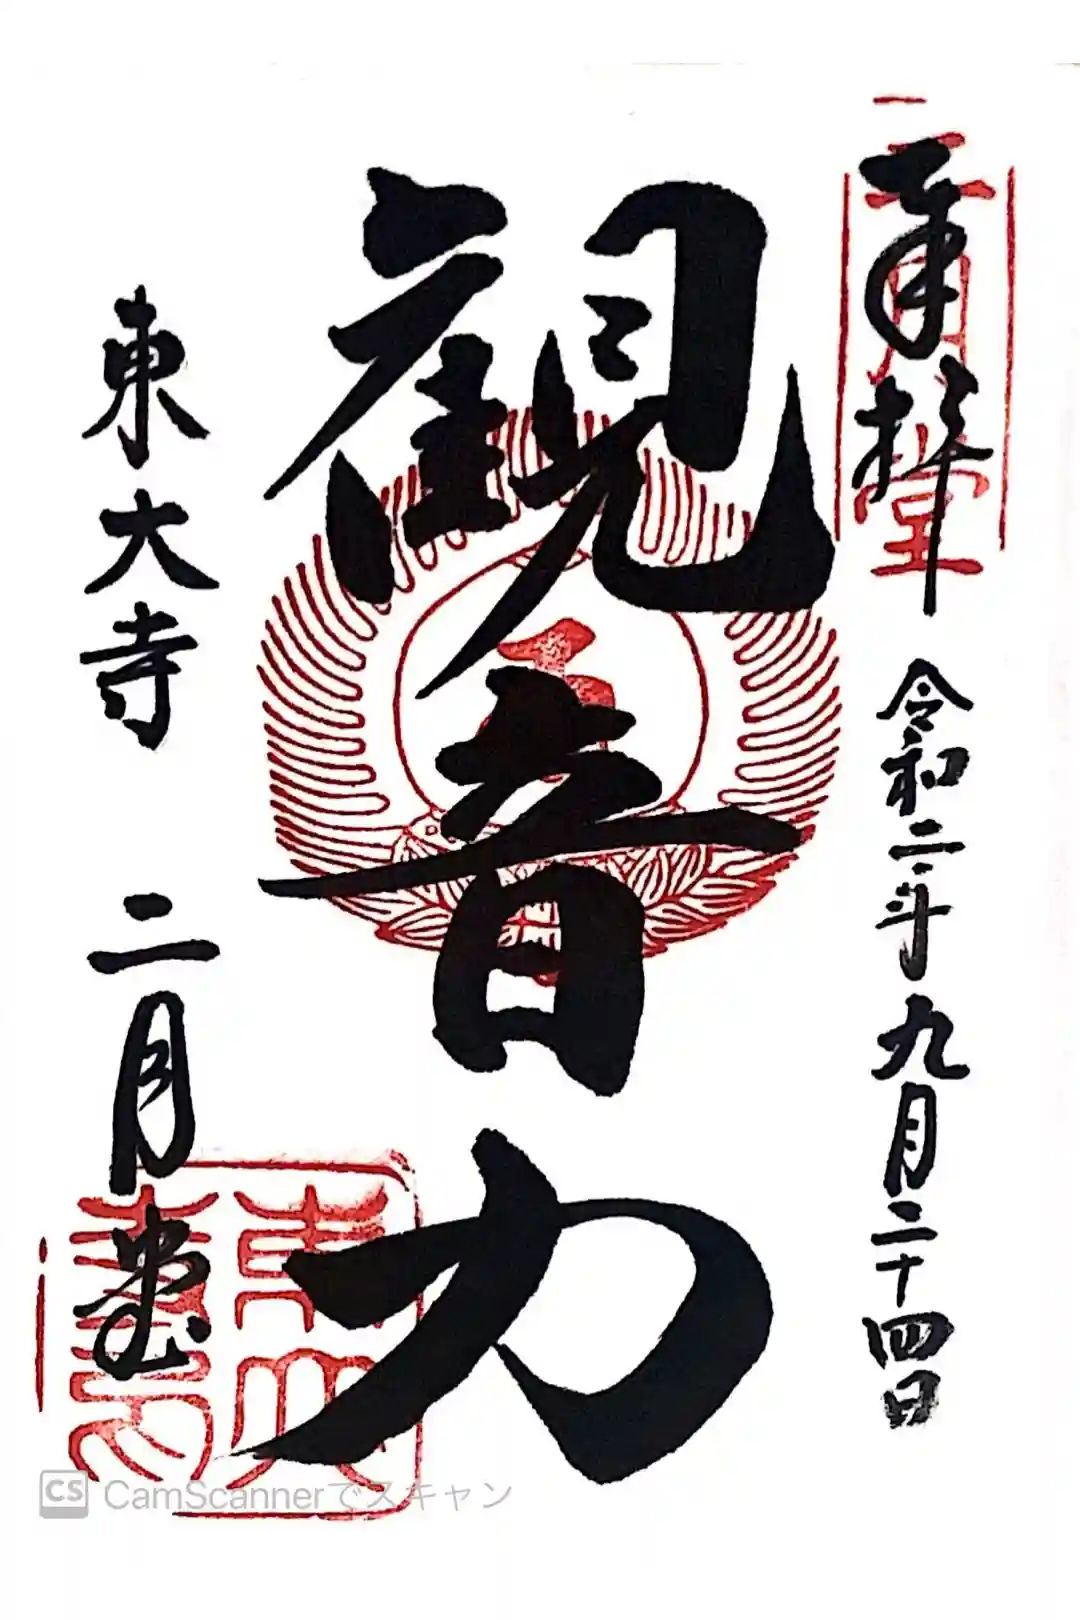 奉拝 令和二年九月二十四日
二月堂
観音力
東大寺 二月堂
CS CamScannerでスキャン